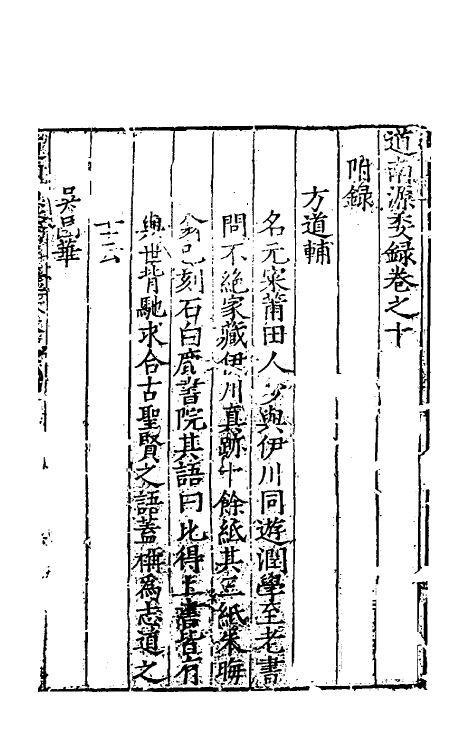 道南源委錄卷之十
附錄
方道輔
名元寀莆田人少與伊川同遊潤學至老書
問不絕家藏伊川真跡十餘紙其三紙朱晦
翁已刻石白鹿書院其語曰比得書皆有
與世背馳求合古聖賢之語蓋稱為志道之
士云
吳邑華